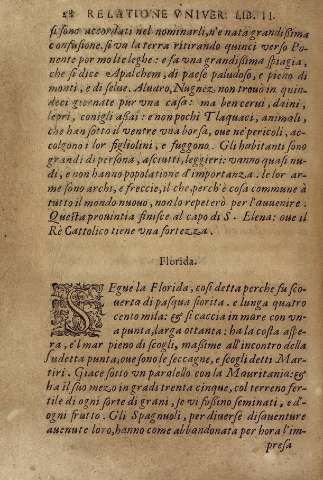 28 RELATIONE VNIVER. LIB. II.
si sono accordati nel nominarli, n'è nata grandissima
confusione. si và la terra ritirando quinci verso Po-
nente per molte leghe: e fa vna grandissima spiagia,
che si dice Apalchem, di paese paludoso, e pieno di
monti, e di selue. Aluaro, Nugnez. non trouò in quin-
deci giornate pur vna casa: ma ben cerui, daini,
lepri, conigli assai: e non pochi Tlaquaci, animali,
che han sotto il ventre vna borsa, oue ne' pericoli, ac-
colgono i lor figliolini, e fuggono. Gli habitanti sono
grandi di persona, asciutti, leggieri: vanno quasi nu-
di, e non hanno popolatione d'importanza. le lor ar-
me sono archi, e freccie, il che, perch'è cosa commune à
tutto il mondo nuouo, non lo repeterò per l'auuenire.
Questa prouintia finisce al capo di S. Elena: oue il
Rè Cattolico tiene vna fortezza.
Florida.
SEgue la Florida, così detta perche fù sco-
uerta di pasqua fiorita. e lunga quattro
cento mila: & si caccia in more con vn-
a punta, larga ottanta: ha la costa aspe-
ra, e'l mar pieno di scogli, massime all'incontro della
sudetta punta, oue sono le seccagne, e scogli detti Mar-
tiri. Giace sotto vn paralello con la Mauritania: &
ha il suo mezo in gradi trenta cinque, col terreno fer-
tile di ogni sorte di grani, se vi fossino seminati, e d'-
ogni frutto. Gli Spagnuoli, per diuerse disauenture
auenute loro, hanno come abbandonata per hora l'im-
presa